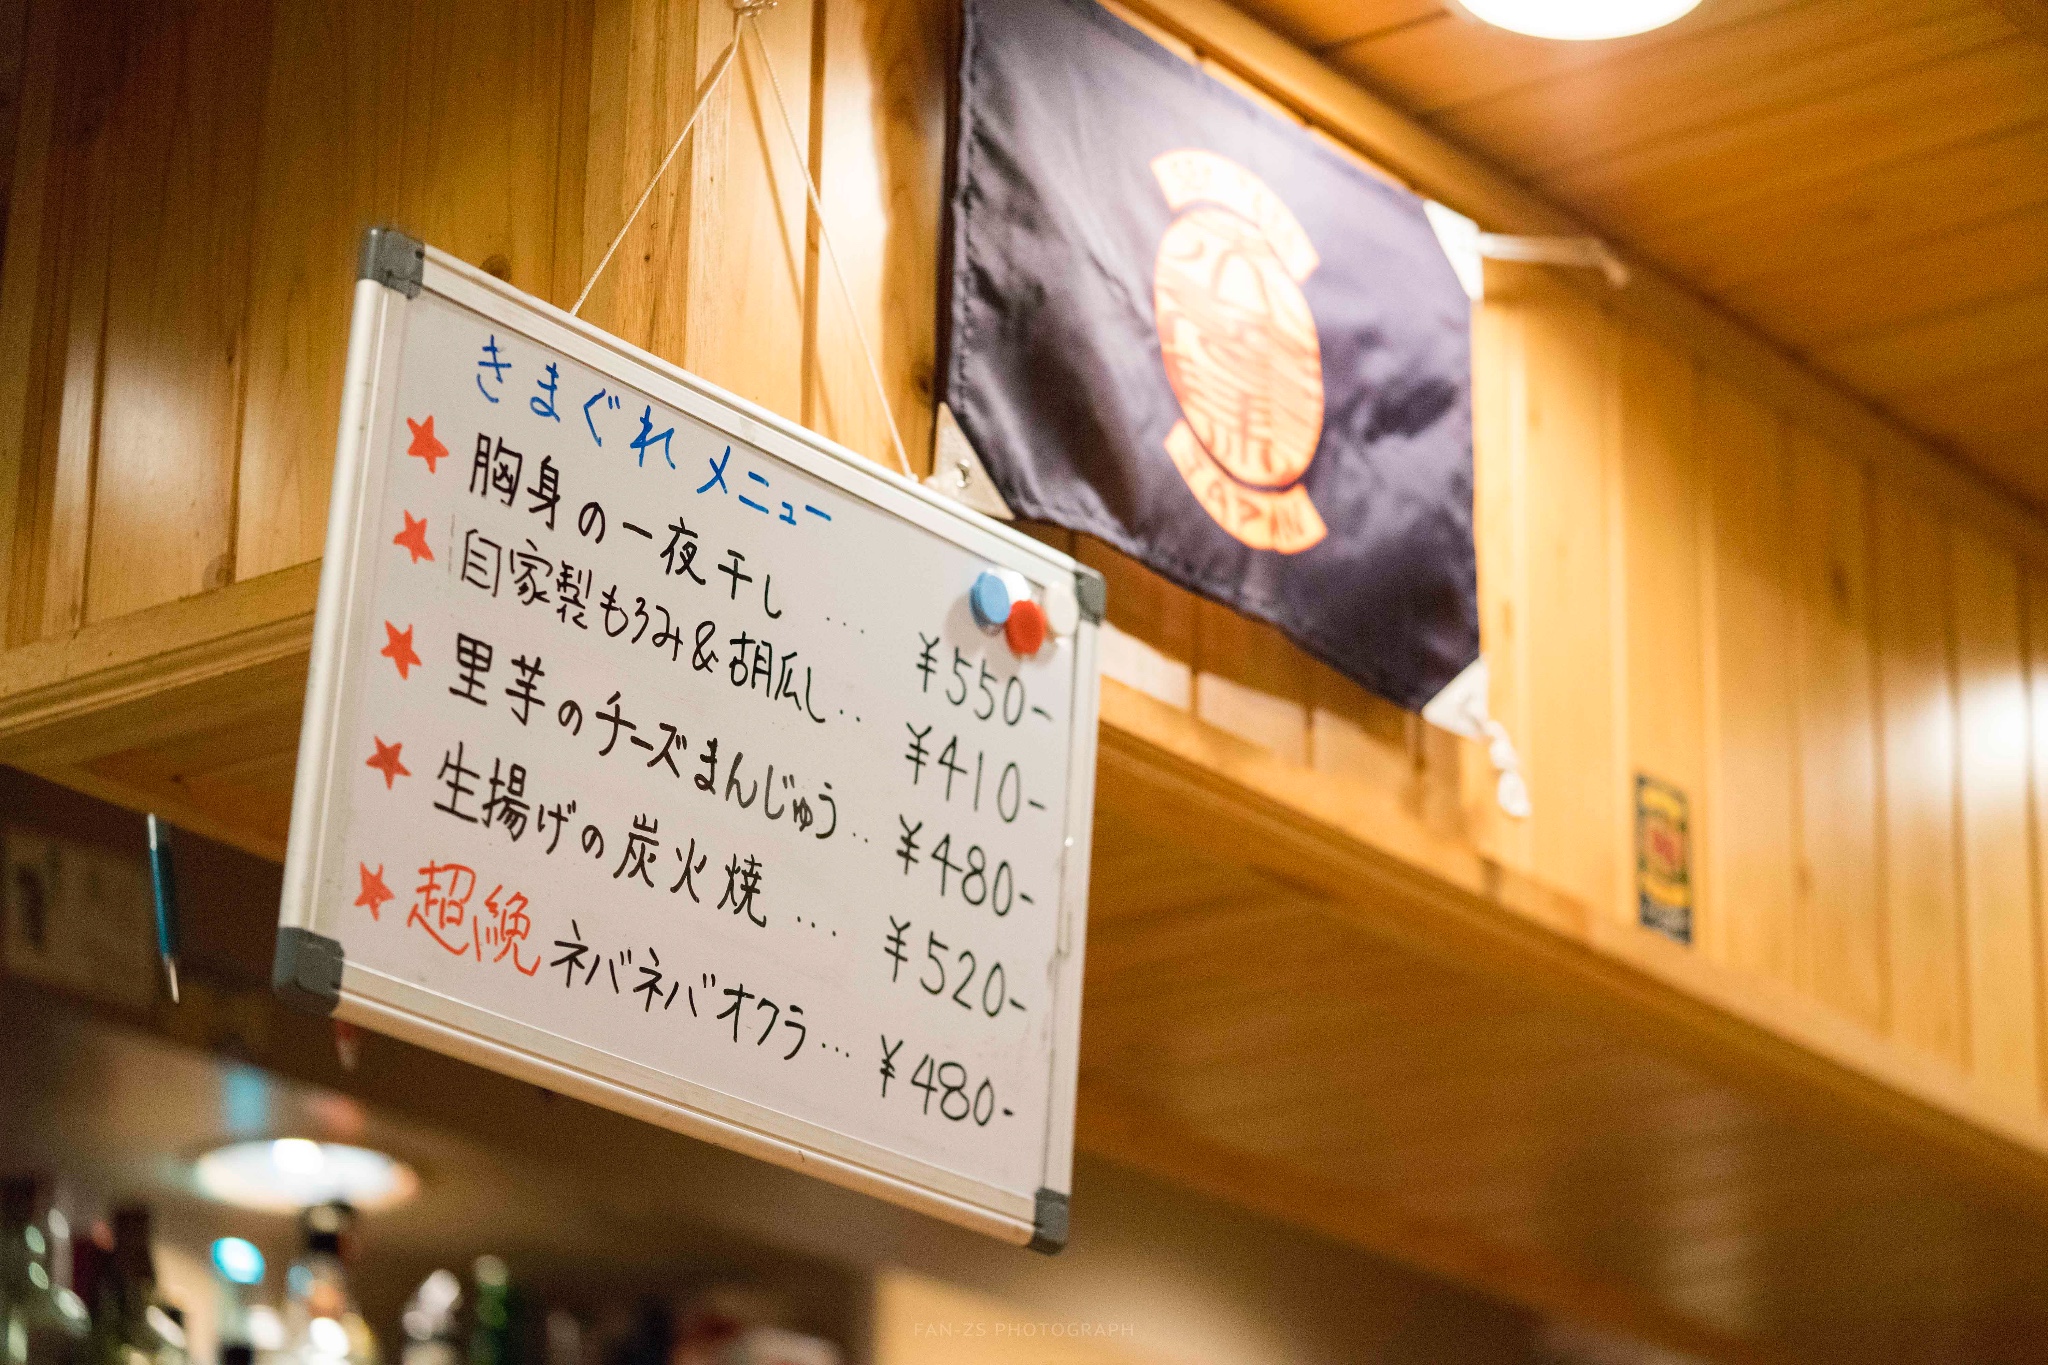 きまぐれメニュー
★胸身の一夜干し … ¥550-
★自家製もろみ&胡瓜し‥ ¥410-
★里芋のチーズまんじゅう‥ ¥480-
★生揚げの炭火焼 … ¥520-
★超絶ネバネバオクラ… ¥480-
JAPAN
FAN-ZS PHOTOGRAPH